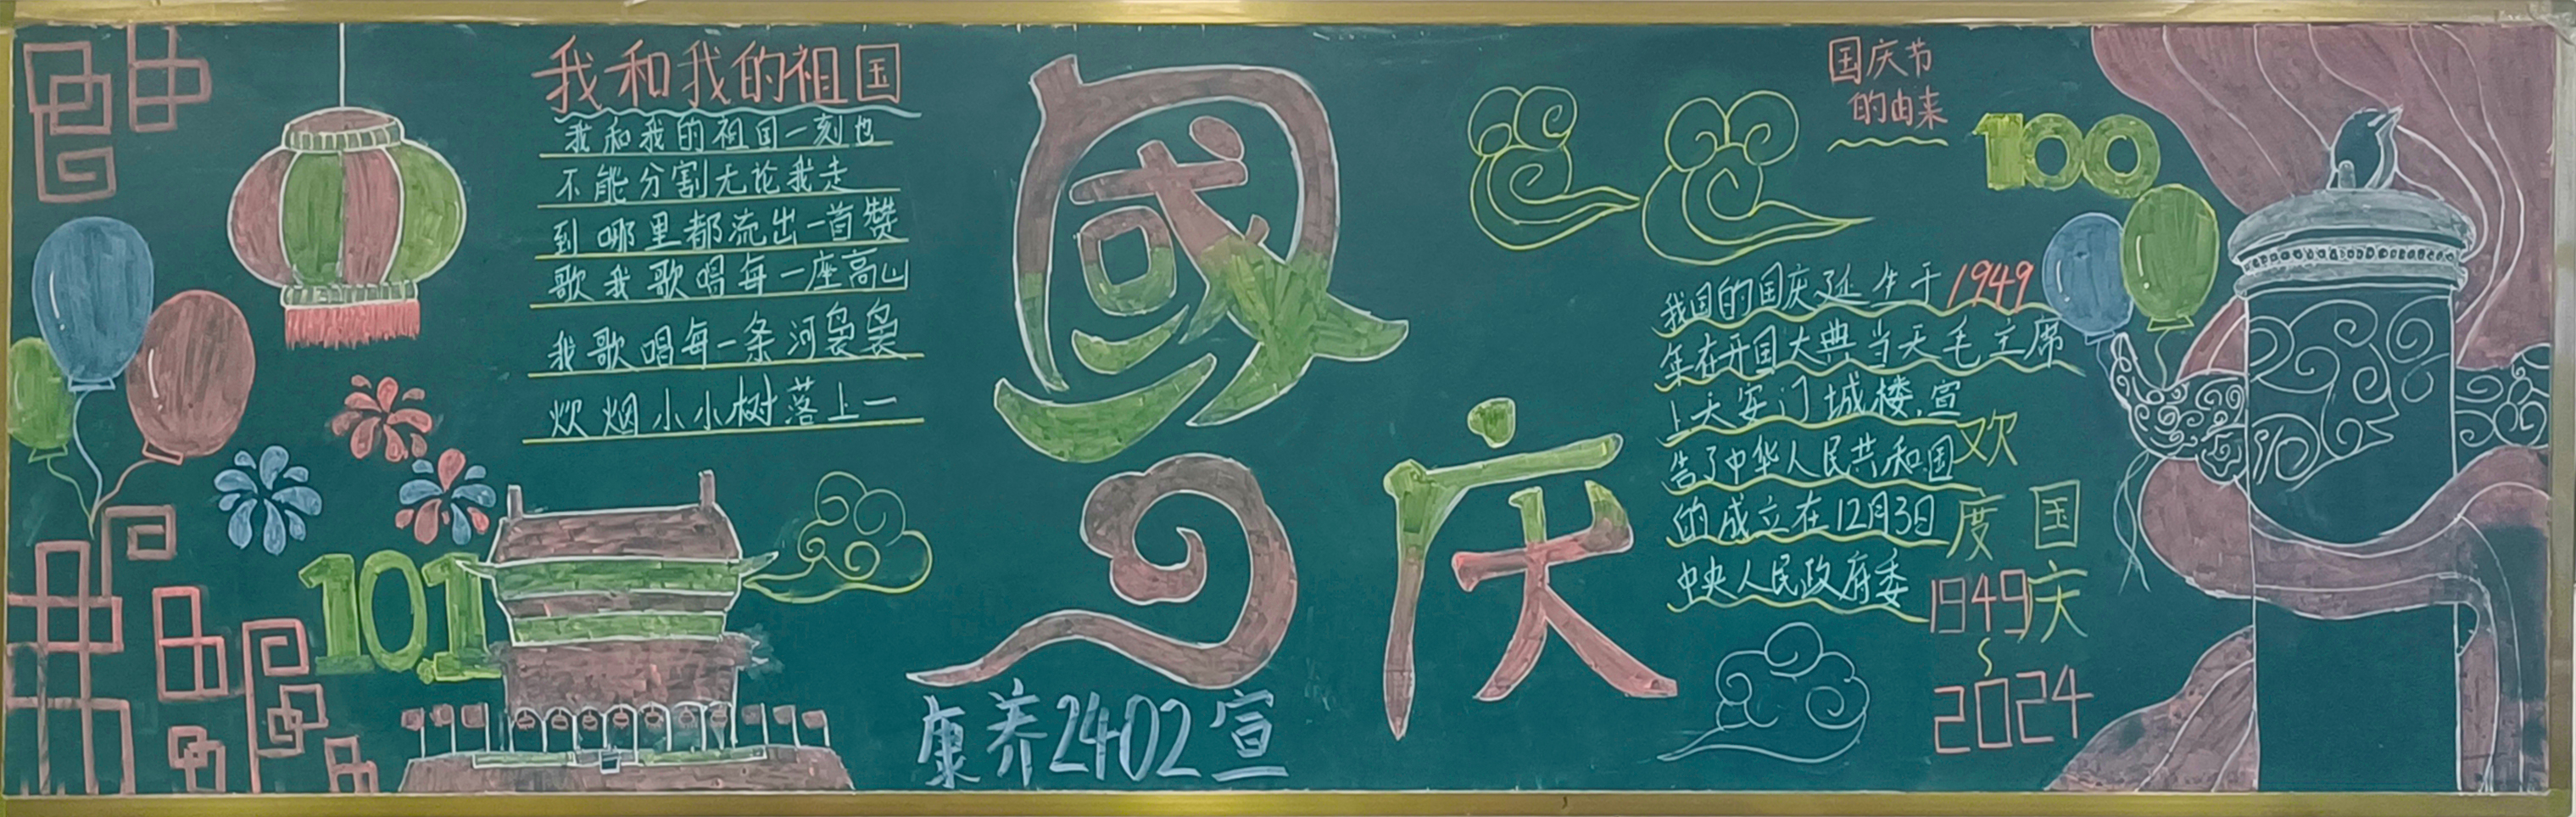 我和我的祖国
我和我的祖国一刻也
不能分割无论我走
到哪里都流出一首赞
歌我歌唱每一座高山
我歌唱每一条河袅袅
炊烟小小树落上一
101
國
庆
康养2402宣
国庆节
的由来
100
我国的国庆诞生于1949
年在开国大典当天毛主席
上天安门城楼,宣
告了中华人民共和国
的成立在12月3日
中央人民政府委
欢
度
国
庆
1949
~
2024